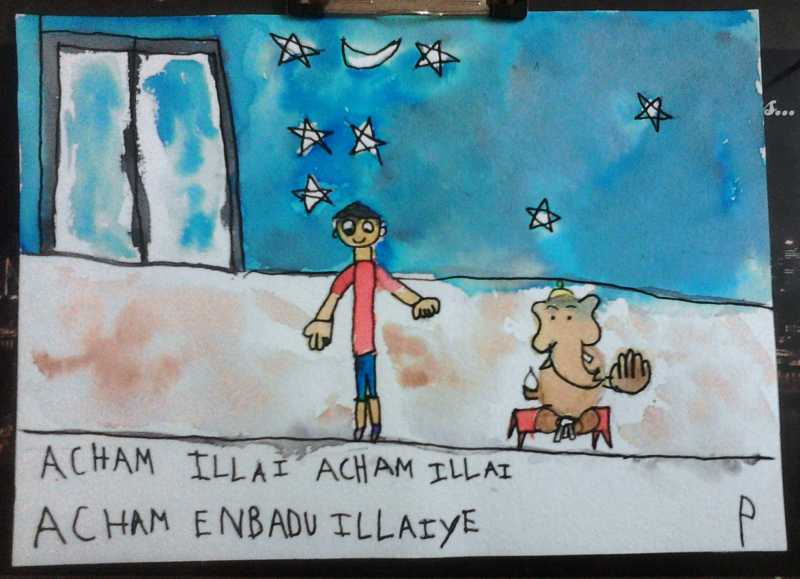 ACHAM ILLAI ACHAM ILLAI
ACHAM ENBADU ILLAIYE
P